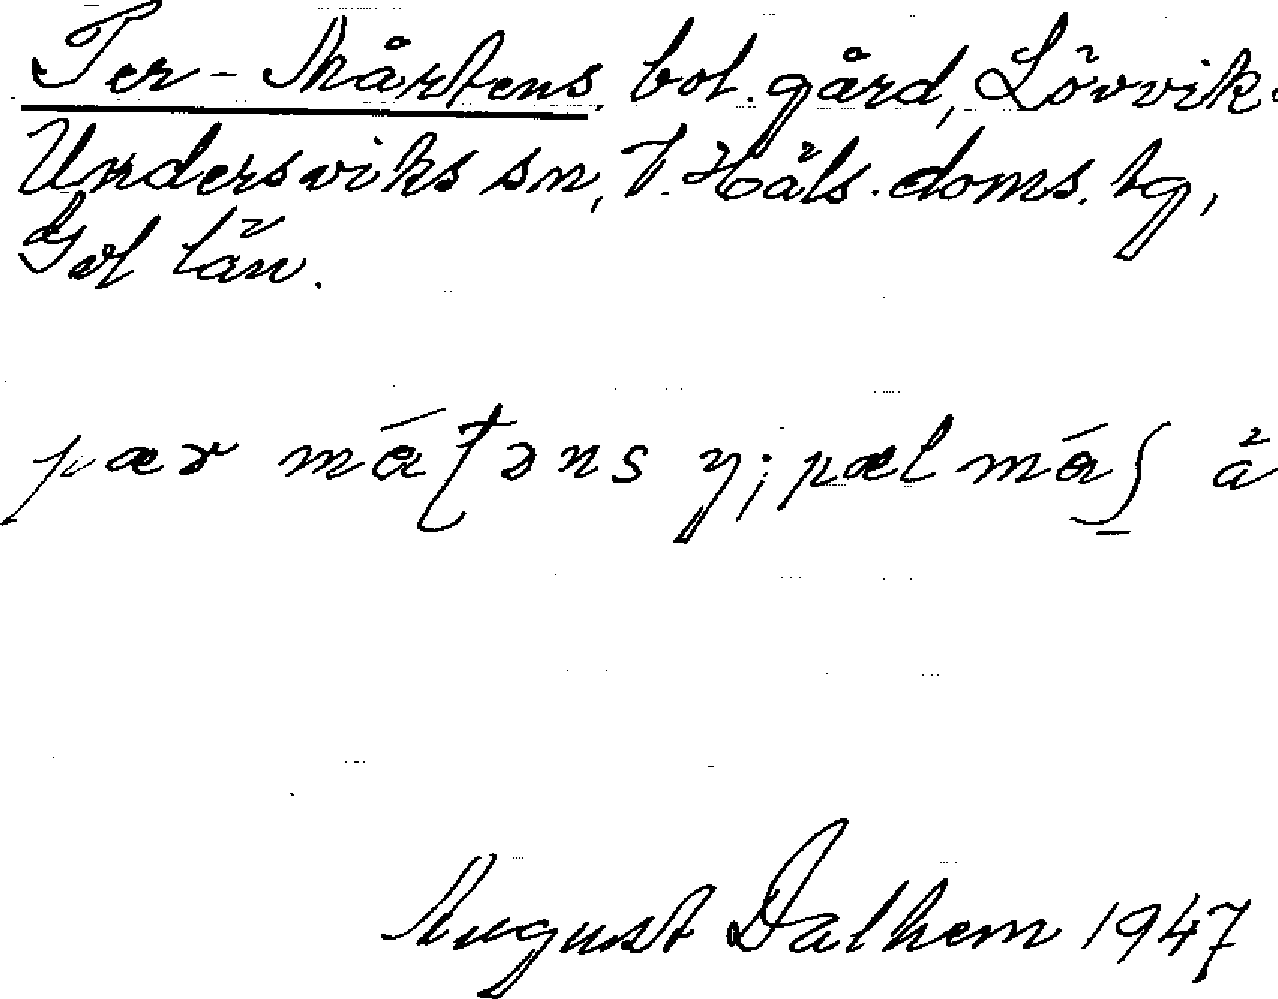 Per-Mårtens, bol. gård, Lövvik.
Undersviks sn, V. Häls. doms. hg,
Gvl län.
pær
August Dalhem 1947